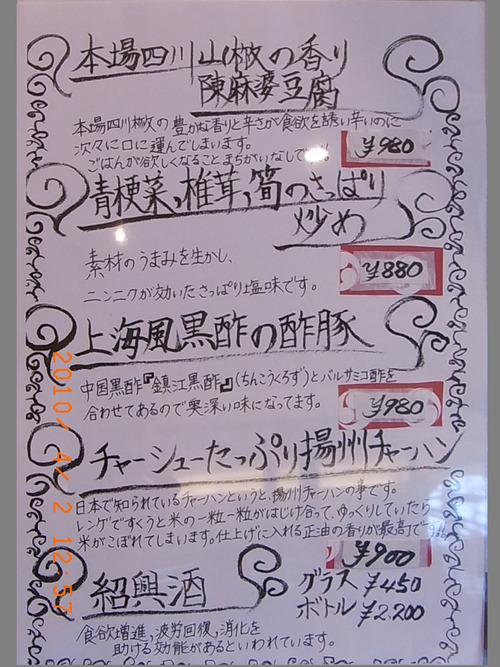 本場四川山椒の香り
陳麻婆豆腐
本場四川椒の豊かな香りと辛さが食欲を誘い辛いのに
次々に口に運んでしまいます。
ごはんが欲しくなることまちがいなしです。
¥980
青梗菜,椎茸,筍のさっぱり
炒め
素材のうまみを生かし、
ニンニクが効いたさっぱり塩味です。
¥880
上海風黒酢の酢豚
中国黒酢『鎮江黒酢』(ちんこうくろず)とバルサミコ酢を
合わせてあるので奥深い味になってます。
¥980
チャーシューたっぷり揚州チャーハン
日本で知られているチャーハンというと、揚州チャーハンの事です。
レンゲですくうと米の一粒一粒がはじけ合って、ゆっくりしていたら
米がこぼれてしまいます。仕上げに入れる正油の香りが最高です。
¥900
紹興酒
グラス ¥450
ボトル ¥2.200
食欲増進,疲労回復,消化を
助ける効能があるといわれています。
2010/4/2 12:57